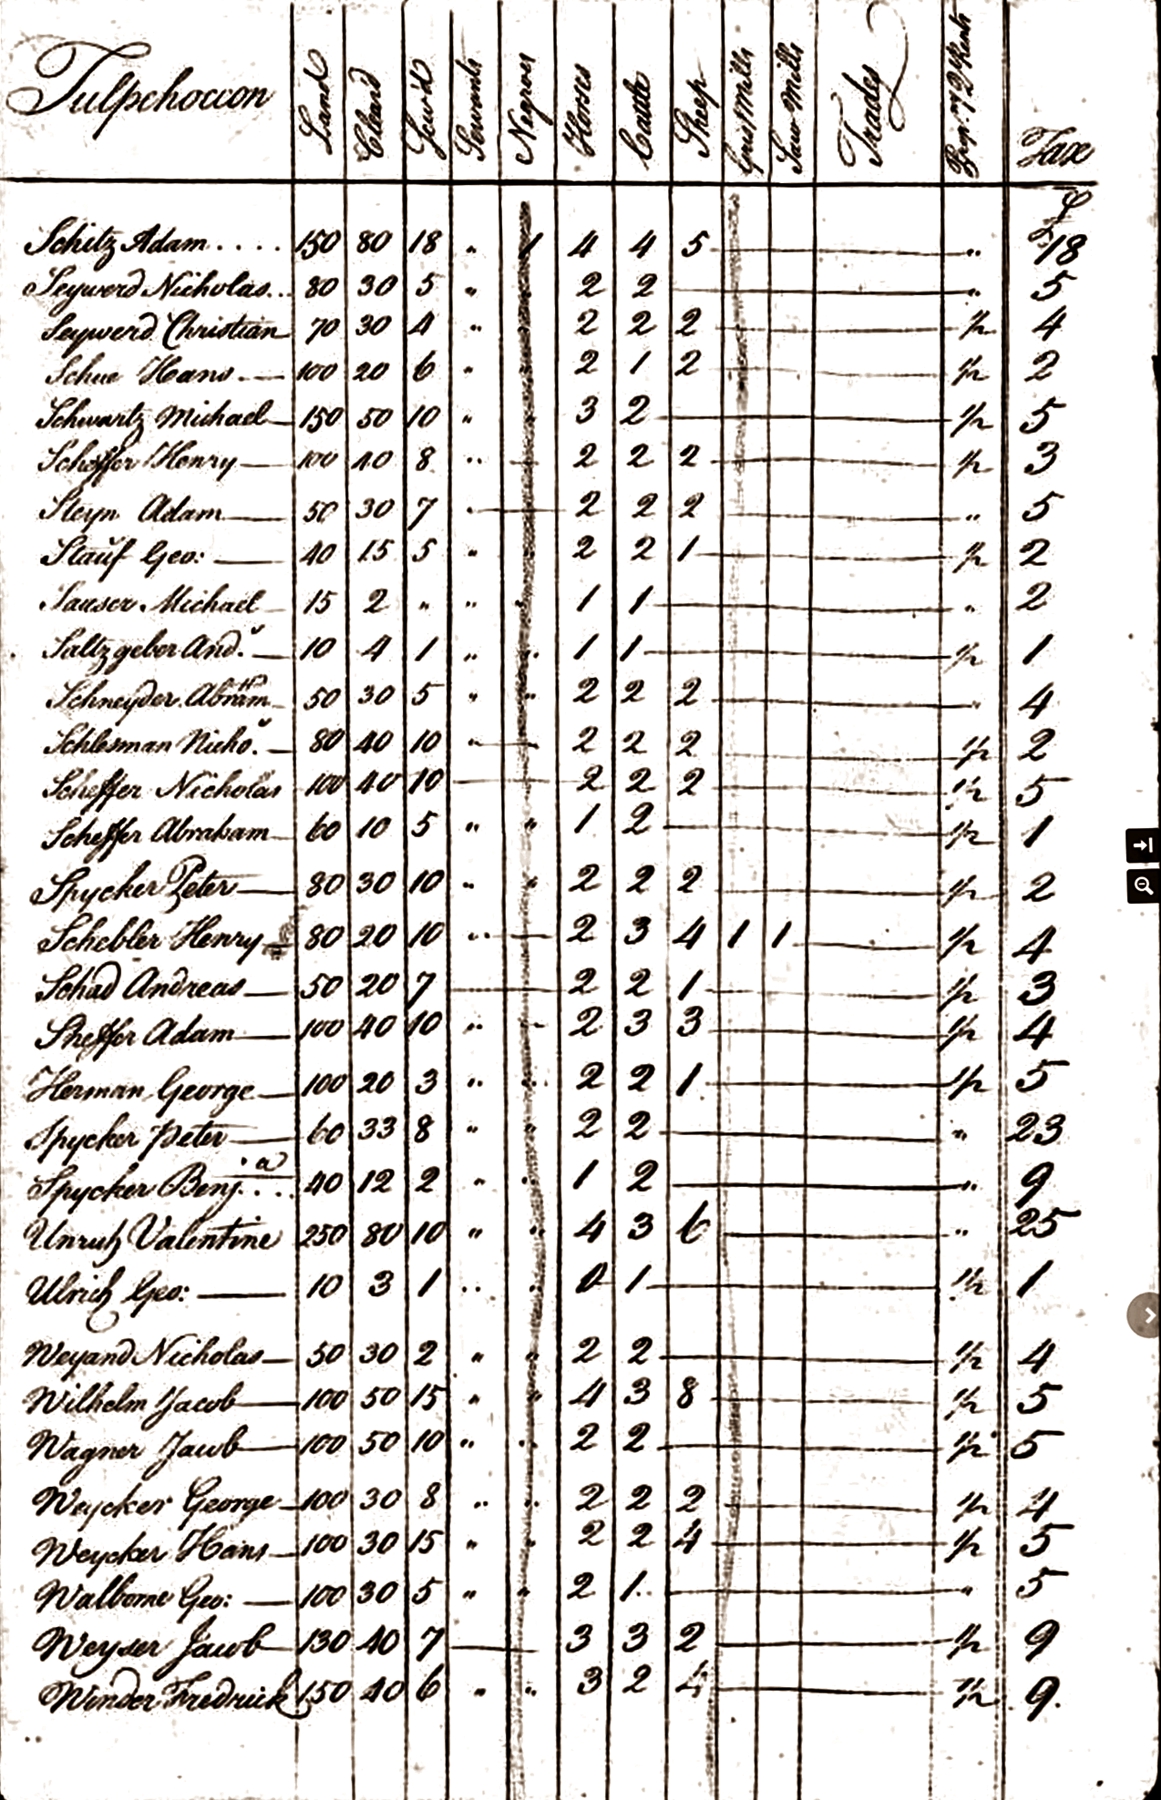 Tulpehoccon Land Clear'd Sow'd Servants Negroes Horses Cattle Sheep GristMills Saw Mills Trades Tax
£
Schitz Adam.... 150 80 18 " 1 4 4 5 " 18
Seywerd Nicholas.. 80 30 5 " 2 2 " 5
Seywerd Christian 70 30 4 " 2 2 2 " 4
Schue Hans 100 20 6 " 2 1 2 2
Schwartz Michael 150 50 10 " 3 2 5
Scheffer Henry 100 40 8 " 2 2 2 3
Steyn Adam 50 30 7 " 2 2 2 " 5
Stauf Geo: 40 15 5 " 2 2 1 2
Sauser Michael 15 2 " " " 1 1 " 2
Saltzgeber And. 10 4 1 " " 1 1 1
Schneyder Abram 50 30 5 " " 2 2 2 " 4
Schlesman Nicho. 80 40 10 " 2 2 2 2
Scheffer Nicholas 100 40 10 2 2 2 5
Scheffer Abraham 60 10 5 " " 1 2 1
Spycker Peter 80 30 10 " " 2 2 2 2
Schebler Henry 80 20 10 " 2 3 4 1 1 4
Schad Andreas 50 20 7 2 2 1 3
Sheffer Adam 100 40 10 " 2 3 3 4
Herman George 100 20 3 " " 2 2 1 5
Spycker Peter 60 33 8 " " 2 2 " 23
Spycker Benj.... 40 12 2 " " 1 2 " 9
Unruh Valentine 250 80 10 " " 4 3 6 " 25
Ulrich Geo: 10 3 1 " " 0 1 1
Weyand Nicholas 50 30 2 " " 2 2 4
Wilhelm Jacob 100 50 15 " " 4 3 8 5
Wagner Jacob 100 50 10 " " 2 2 5
Weycker George 100 30 8 " " 2 2 2 4
Weycker Hans 100 30 15 " " 2 2 4 5
Walborne Geo: 100 30 5 " " 2 1 " 5
Weyser Jacob 130 40 7 3 3 2 9
Winder Fredrick 150 40 6 " " 3 2 4 9.